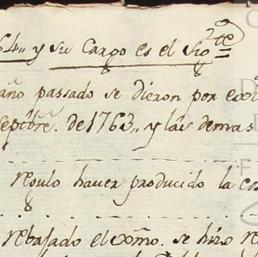 64,, y su Cargo es el Sig.te
año passado se dieron por
septbre. de 1763,, y las demas
haver producido la
rebajado el se hizo